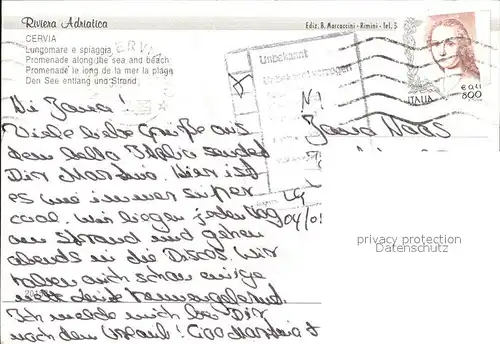 Riviera Adriatica
Ediz. B. Marcaccini - Rimini - Tel. 5
CERVIA
Lungomare e spiaggia
Promenade along the sea and beach
Promenade le long de la mer la plage
Den See entlang und Strand
CERVIA
Unbekannt
Unbekannt verzogen
ITALIA
€ 0,41
800
Hi Jana!
Viele liebe Grüße aus
dem bella Italia sendet
Dir Martina. Hier ist
es wie immer super
cool. Wir liegen jeden Tag
am Strand und gehen
abends in die Discos. Wir
haben auch schon einige
nette Leute kennengelernt.
Ich melde mich bei Dir
nach dem Urlaub! Ciao Martina
Jana Naas
04/0
privacy protection
Datenschutz